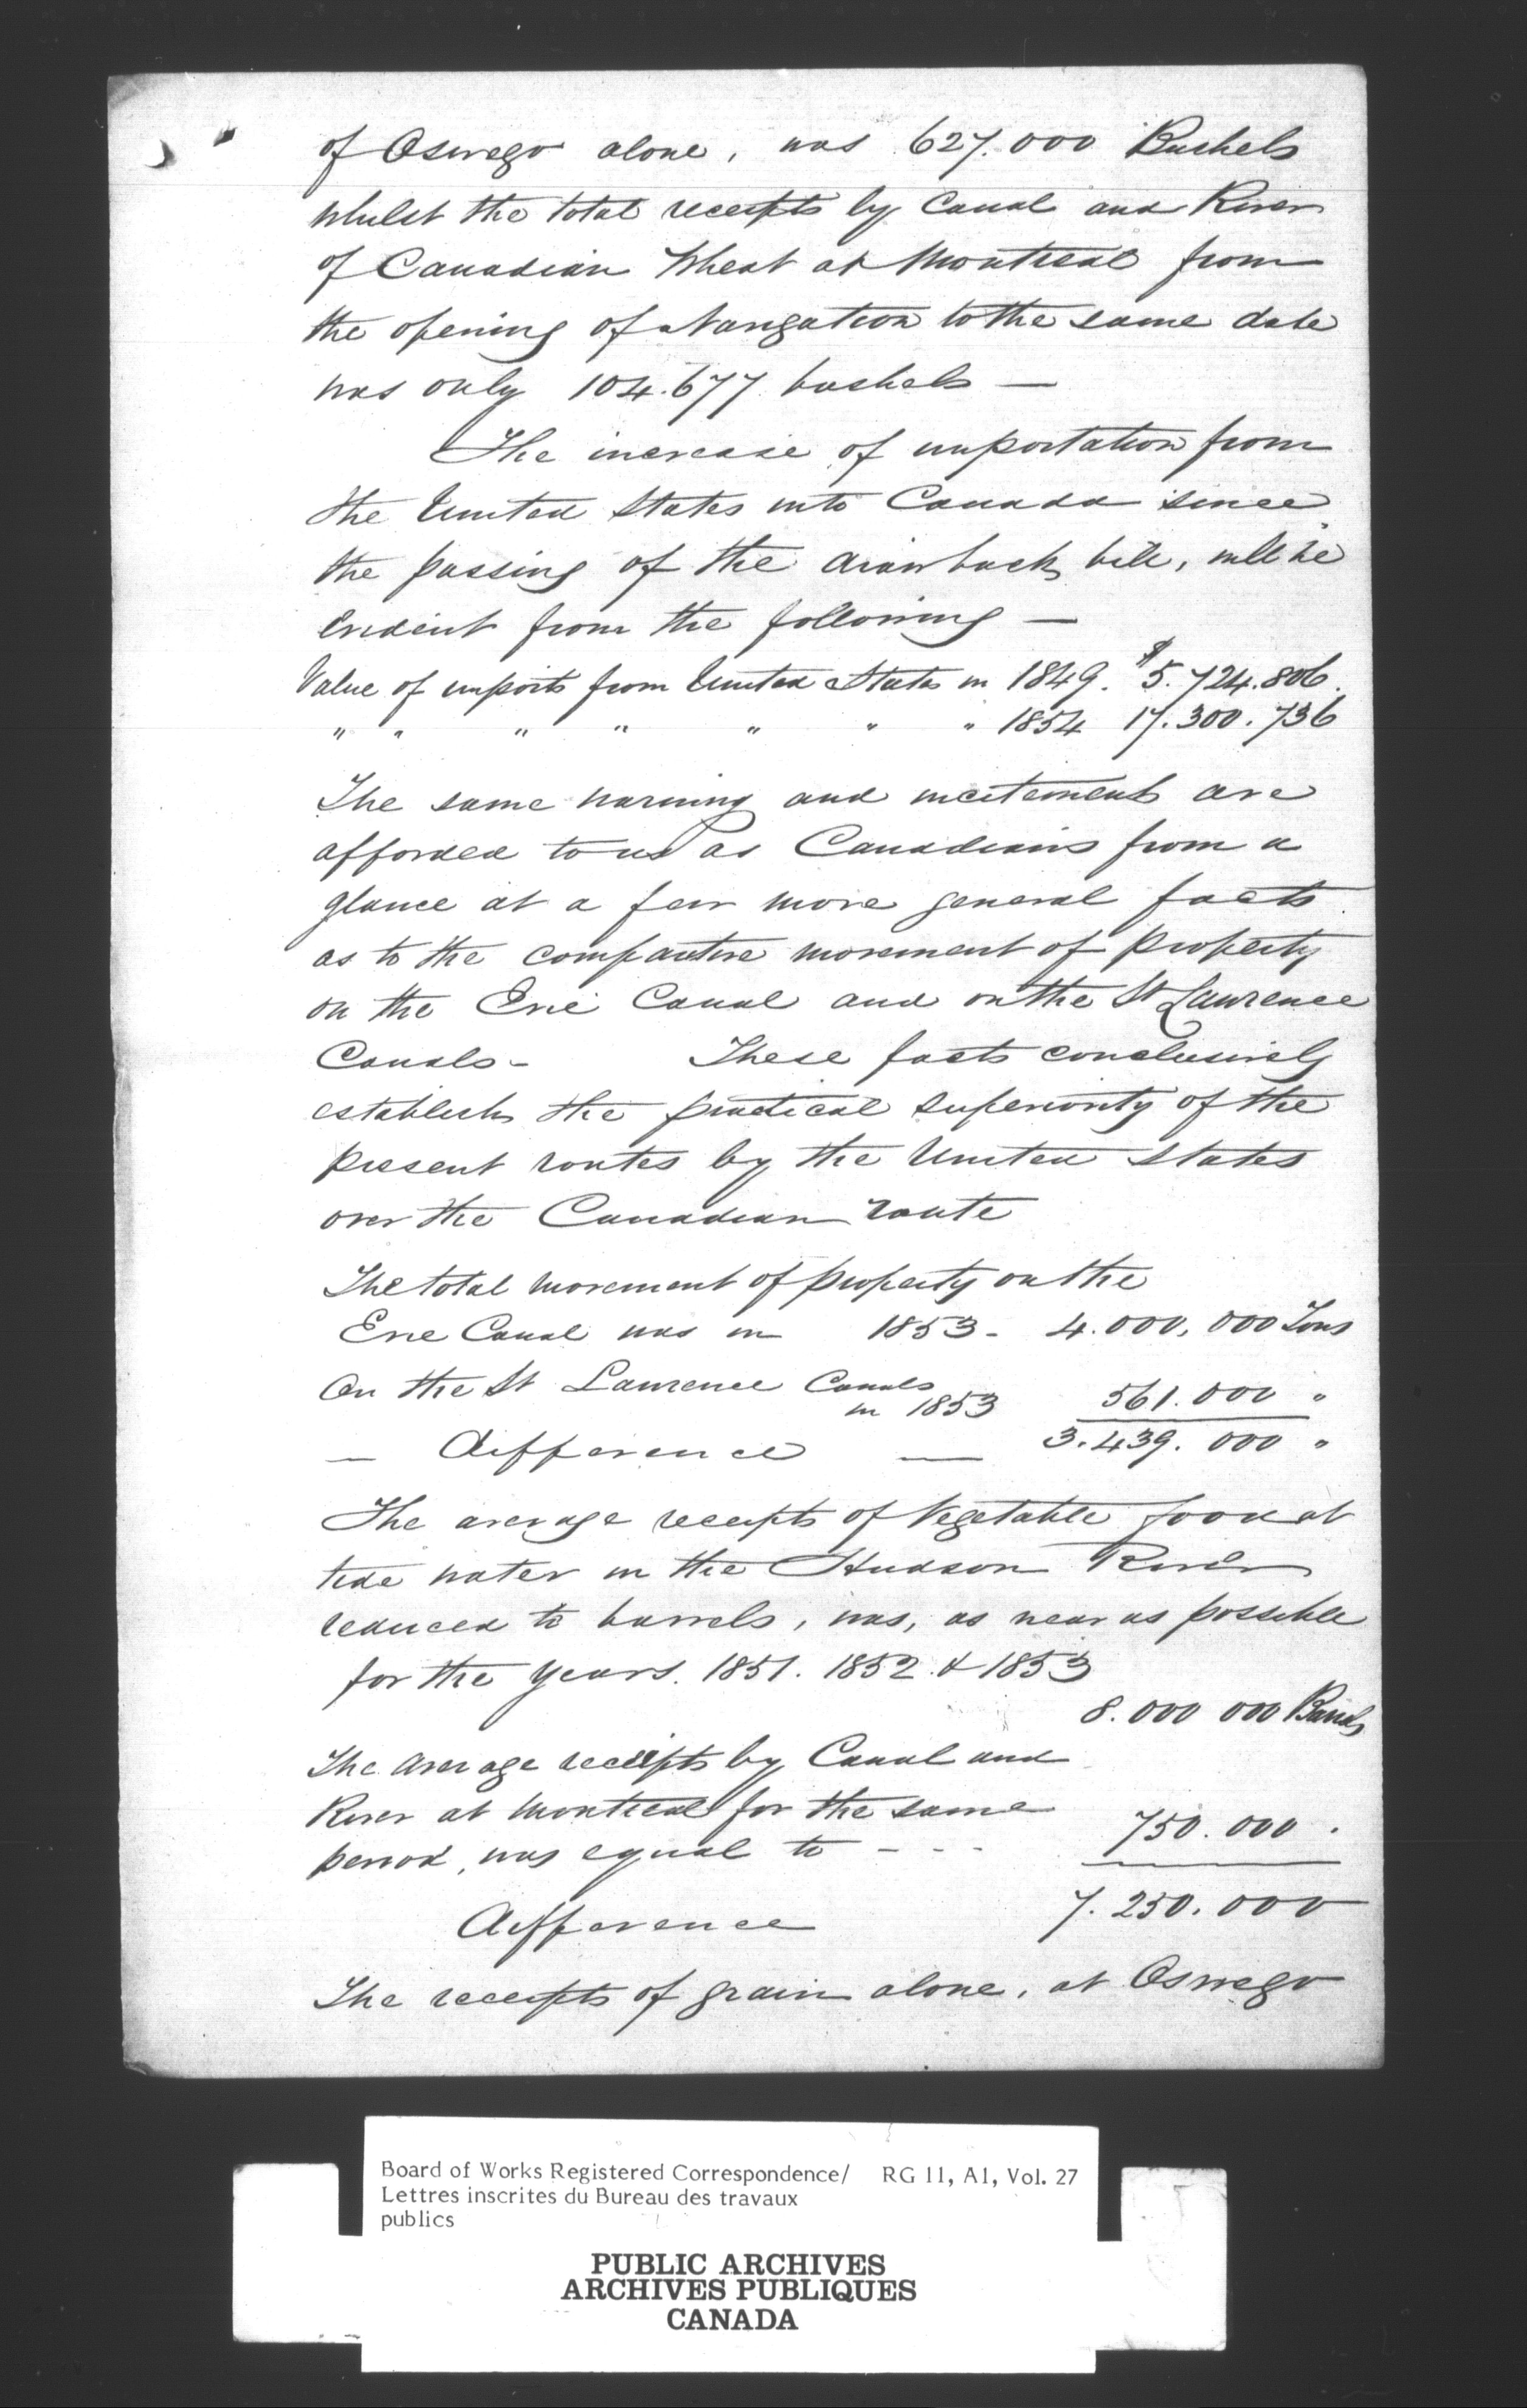 of Oswego alone, was 627.000 Bushels
whilst the total receipts by Canal and River
of Canadian Wheat at Montreal from
the opening of Navigation to the same date
was only 104.677 bushels —
The increase of importation from
the United States into Canada since
the passing of the drawback bill, will be
evident from the following —
Value of imports from United States in 1849. $5.724.806.
" " " " " " " 1854 17.300.736
The same warning and incitement are
afforded to us as Canadians from a
glance at a few more general facts
as to the comparative movement of property
on the Erie Canal and on the St Lawrence
Canals - These facts conclusively
establish the practical superiority of the
present routes by the United States
over the Canadian route
The total movement of property on the
Erie Canal was in 1853 - 4.000,000 Tons
On the St Lawrence Canals
in 1853 561.000 "
— difference — 3.439.000 "
The average receipts of Vegetable food at
tide water in the Hudson River
reduced to barrels, was, as near as possible
for the years. 1851. 1852. & 1853
8.000 000 Barrels
The average receipts by Canal and
River at Montreal for the same
period, was equal to - - - 750.000 .
difference 7.250.000
The receipts of grain alone, at Oswego
Board of Works Registered Correspondence/ RG 11, A1, Vol. 27
Lettres inscrites du Bureau des travaux
publics
PUBLIC ARCHIVES
ARCHIVES PUBLIQUES
CANADA